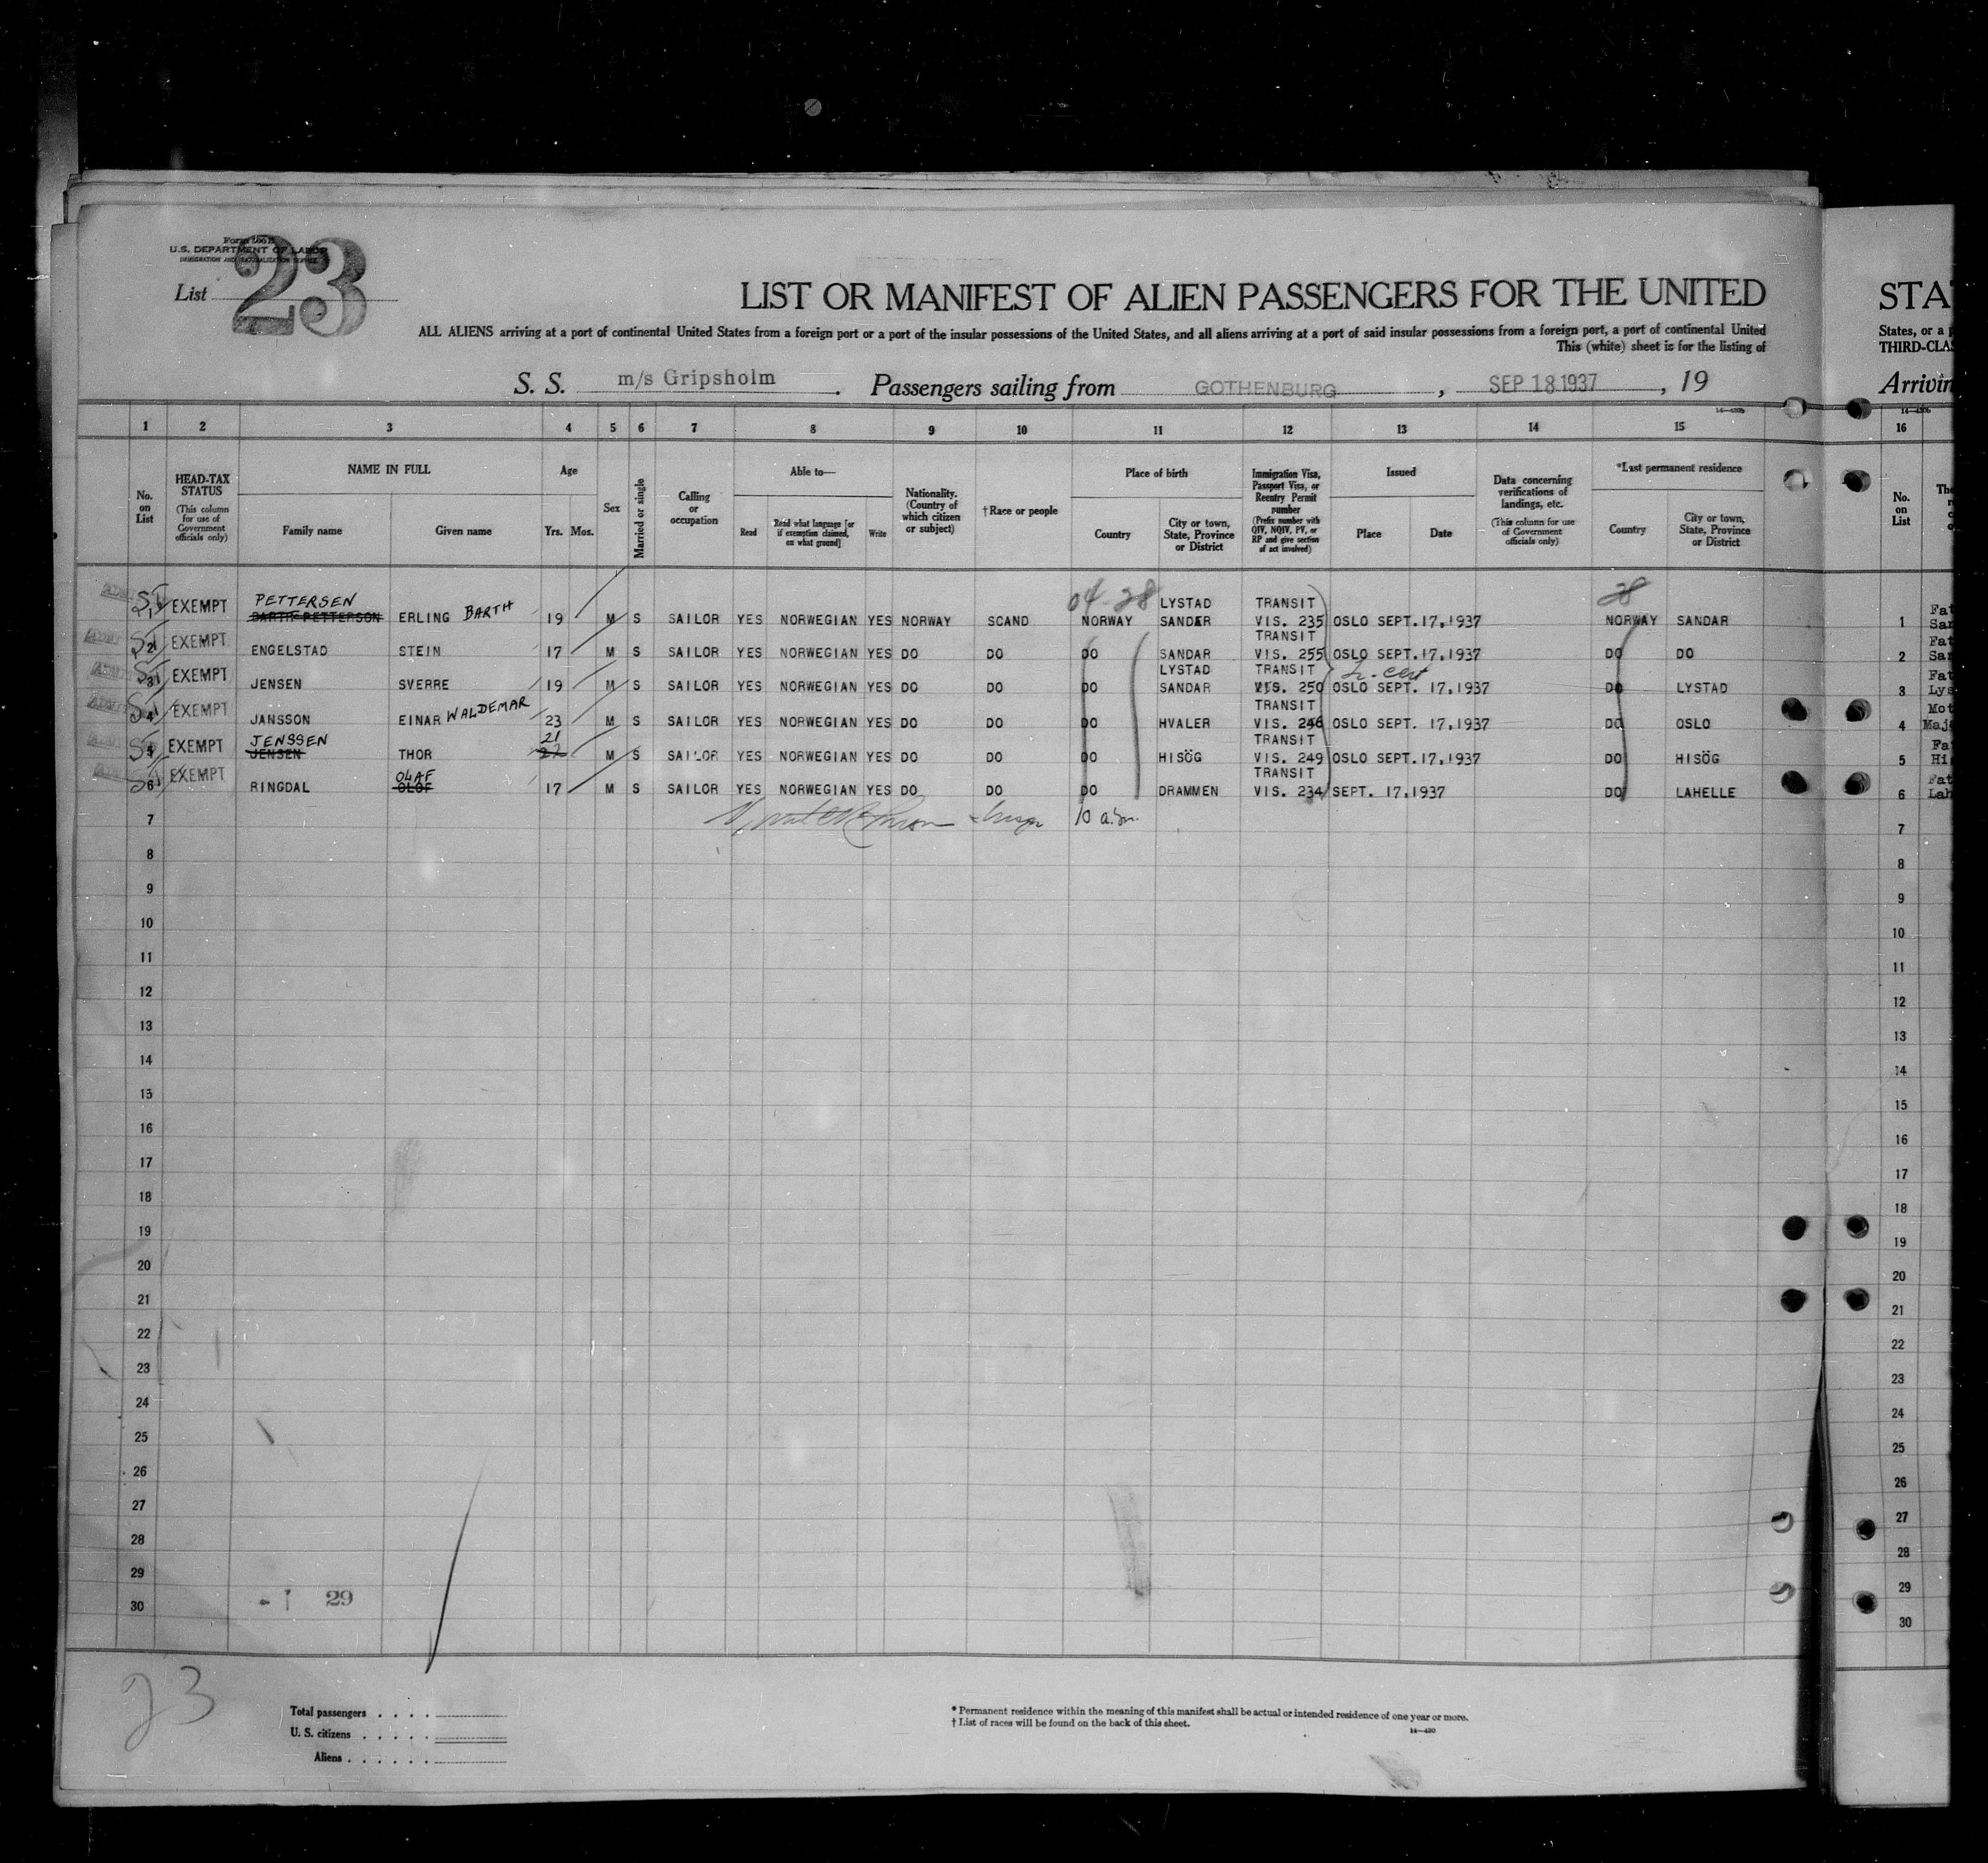 Form 500 B
U.S. DEPARTMENT OF LABOR
IMMIGRATION AND NATURALIZATION SERVICE
List 23
LIST OR MANIFEST OF ALIEN PASSENGERS FOR THE UNITED
ALL ALIENS arriving at a port of continental United States from a foreign port or a port of the insular possessions of the United States, and all aliens arriving at a port of said insular possessions from a foreign port, a port of continental United
This (white) sheet is for the listing of
S. S. m/s Gripsholm . Passengers sailing from GOTHENBURG , SEP 18 1937 , 19
STA
States, or a p
THIRD-CLAS
Arrivin
1 2 3 4 5 6 7 8 9 10 11 12 13 14 15 16
No. on List
HEAD-TAX STATUS (This column for use of Government officials only)
NAME IN FULL
Family name Given name
Age
Yrs. Mos.
Sex
Married or single
Calling or occupation
Able to—
Read Read what language [or if exemption claimed, on what ground] Write
Nationality. (Country of which citizen or subject)
†Race or people
Place of birth
Country City or town, State, Province or District
Immigration Visa, Passport Visa, or Reentry Permit number (Prefix number with QIV, NQIV, PV, or RP and give section of act involved)
Issued
Place Date
Data concerning verifications of landings, etc. (This column for use of Government officials only)
*Last permanent residence
Country City or town, State, Province or District
No. on List
PETTERSEN 04-28 LYSTAD TRANSIT 28
1 EXEMPT BARTH-PETTERSON ERLING BARTH 19 M S SAILOR YES NORWEGIAN YES NORWAY SCAND NORWAY SANDER VIS. 235 OSLO SEPT.17,1937 NORWAY SANDAR 1
TRANSIT
2 EXEMPT ENGELSTAD STEIN 17 M S SAILOR YES NORWEGIAN YES DO DO DO SANDAR VIS. 255 OSLO SEPT.17,1937 DO DO 2
LYSTAD TRANSIT
3 EXEMPT JENSEN SVERRE 19 M S SAILOR YES NORWEGIAN YES DO DO DO SANDAR VIS. 250 OSLO SEPT. 17,1937 DO LYSTAD 3
TRANSIT
4 EXEMPT JANSSON EINAR WALDEMAR 23 M S SAILOR YES NORWEGIAN YES DO DO DO HVALER VIS. 246 OSLO SEPT. 17,1937 DO OSLO 4
JENSSEN 21 TRANSIT
5 EXEMPT JENSEN THOR 22 M S SAILOR YES NORWEGIAN YES DO DO DO HISÖG VIS. 249 OSLO SEPT.17,1937 DO HISÖG 5
OLAF TRANSIT
6 EXEMPT RINGDAL OLOF 17 M S SAILOR YES NORWEGIAN YES DO DO DO DRAMMEN VIS. 234 SEPT. 17,1937 DO LAHELLE 6
7 10 a.m. 7
8 8
9 9
10 10
11 11
12 12
13 13
14 14
15 15
16 16
17 17
18 18
19 19
20 20
21 21
22 22
23 23
24 24
25 25
26 26
27 27
28 28
29 29
30 30
29
23
Total passengers
U. S. citizens
Aliens
* Permanent residence within the meaning of this manifest shall be actual or intended residence of one year or more.
† List of races will be found on the back of this sheet.
14—430